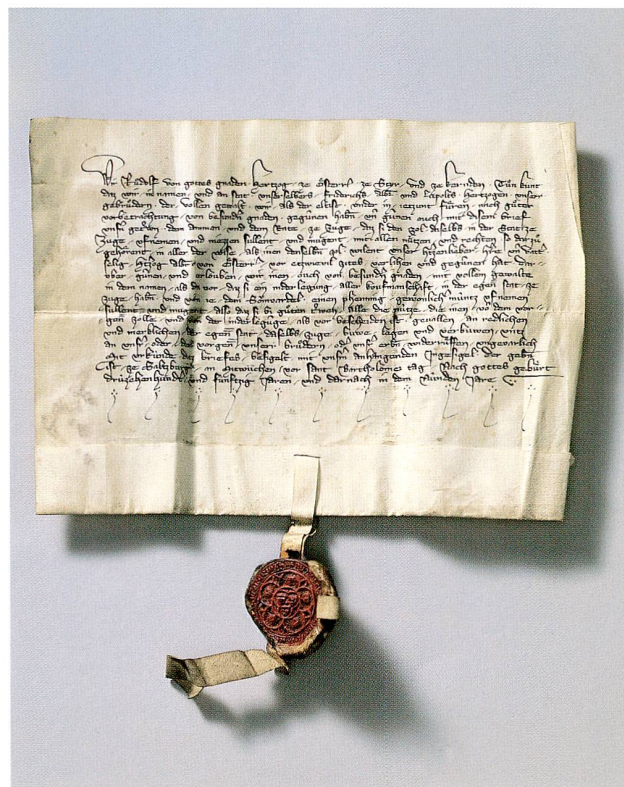 Wir Růdolf von gottes gnaden hertzog ze Osterr ze Styr und ze kernden Tůn kunt
daz wir in namen und an stat unserselbers fridrichs albr und Leupolts hertzogen unserr
gebrůdern der vollen gewalt wir als der eltist under in ietzunt fůren mit gůter
vorbetrachtung von besundn gnaden gegunen habn und gunen ouch mit disem brief
unsn dem Amman und dem Rate ze Zuge daz si den zol daselbs in der Statze
Zuge ufnemen und niezzen sullent und mugent mit allen nutzen und rechten so dar zů
gehorent in aller der wise als in denselben zol wilent unser herre und vatter
selig hertzog albr von Osterr vor etzwevil zites verlihen und gegunet hat dar
uber gunen und erlouben wir inen ouch von besundn gnaden mit vollem gewalte
in dem namen als da vor daz si ein niderlegung aller koufmanschaft in der egen stat ze
zuge habn und von ie dem Sōm einen phenning gewonlicher můntz ufnemen
sullent und mugent also daz si bi gůten trwen alle die nůtze die inen von dem vor
gen zolle und von der niderlegūge als vor bescheiden ist gevallen an redlichen
und merklichen der egen stat daselbs ze zuge buwe legen und verbuwen untz
an unsr oder der vorgen unserr brůdern odr unsr erbn widerrůffen ungevarlich
Mit urkunde diz briefes besigelt mit unsm anhangenden Ingesigel der gebn
ist ze Saltzburg an mitwuchen vor sant Bartholomes tag Nach gottes gebůrt
drůzehenhundt und funftzig Jaren und darnach in dem Nůnden Jare